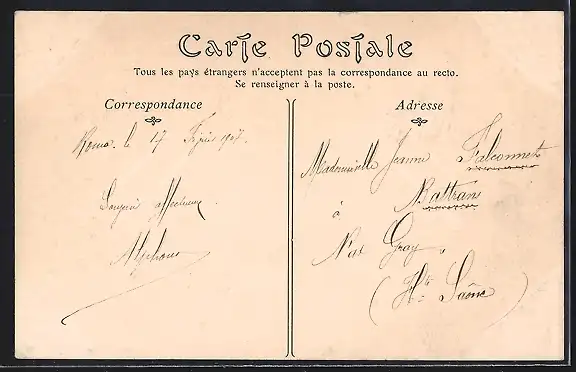 Carte Postale
Tous les pays étrangers n'acceptent pas la correspondance au recto.
Se renseigner à la poste.
Correspondance
Adresse
le 17 Février 1907.
affectueux
Alphonse
Mademoiselle Jeanne Falconnet
Battrans
à
Gray
(Hte Saône)